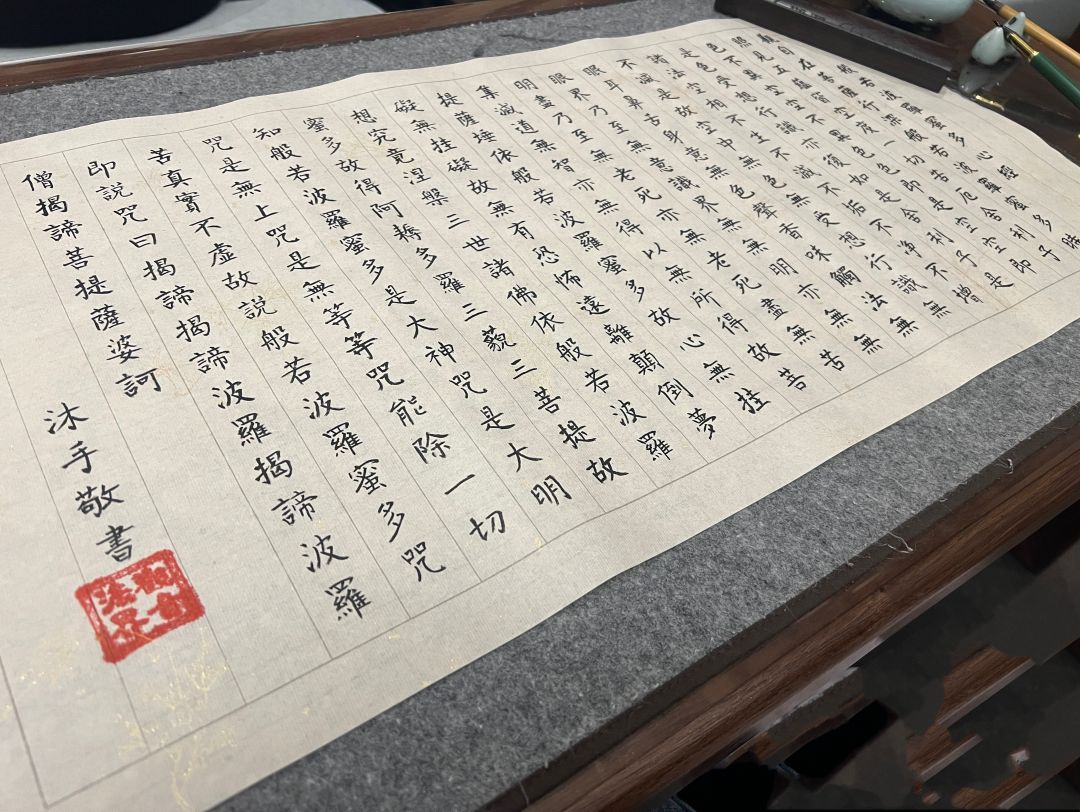 般若波羅蜜多心經
觀自在菩薩行深般若波羅蜜多時
照見五蘊皆空度一切苦厄舍利子
色不異空空不異色色即是空空即
是色受想行識亦復如是舍利子是
諸法空相不生不滅不垢不淨不增
不減是故空中無色無受想行識無
眼耳鼻舌身意無色聲香味觸法無
眼界乃至無意識界無無明亦無無
明盡乃至無老死亦無老死盡無苦
集滅道無智亦無得以無所得故菩
提薩埵依般若波羅蜜多故心無挂
礙無挂礙故無有恐怖遠離顛倒夢
想究竟涅槃三世諸佛依般若波羅
蜜多故得阿耨多羅三藐三菩提故
知般若波羅蜜多是大神咒是大明
咒是無上咒是無等等咒能除一切
苦真實不虛故說般若波羅蜜多咒
即說咒曰揭諦揭諦波羅揭諦波羅
僧揭諦菩提薩婆訶
沐手敬書